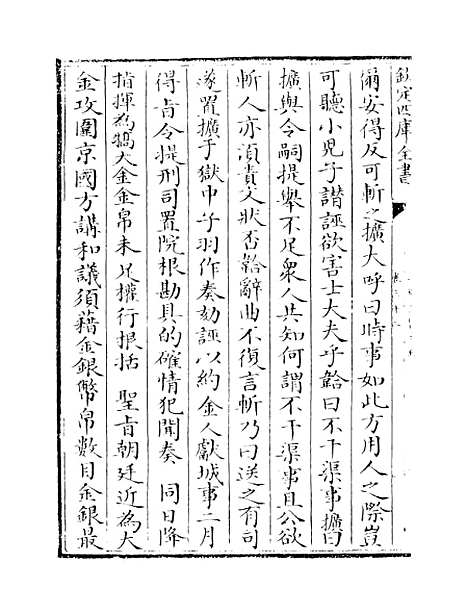 欽定四庫全書
爾安得反可斬之擴大呼曰時事如此方用人之際豈
可聽小兒子譖誣欲害士大夫乎韐曰不干渠事擴曰
擴與令嗣提舉不足衆人共知何謂不干渠事且公欲
斬人亦須責文狀否韐辭曲不復言斬乃曰送之有司
遂置擴于獄中子羽作奏劾誣以約金人獻城事二月
得㫖令提刑司置院根勘具的確情犯聞奏 同日降
指揮為犒大金金帛未足權行根括 聖㫖朝廷近為大
金攻圍京國方講和議須藉金銀幣帛數目金銀最